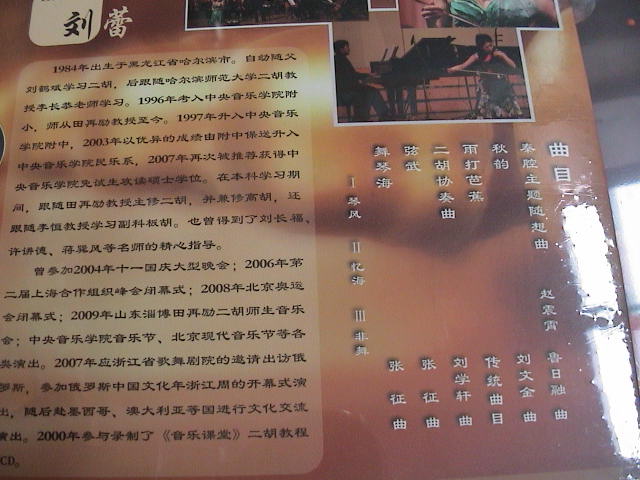 刘蕾
1984年出生于黑龙江省哈尔滨市。自幼随父
刘鹤斌学习二胡，后跟随哈尔滨师范大学二胡教
授李长恭老师学习。1996年考入中央音乐学院附
小，师从田再励教授至今。1997年升入中央音乐
学院附中，2003年以优异的成绩由附中保送升入
中央音乐学院民乐系，2007年再次被推荐获得中
央音乐学院免试生攻读硕士学位。在本科学习期
间，跟随田再励教授主修二胡，并兼修高胡，还
跟随李恒教授学习副科板胡。也曾得到了刘长福、
许讲德、蒋巽风等名师的精心指导。
曾参加2004年十一国庆大型晚会；2006年第
二届上海合作组织峰会闭幕式；2008年北京奥运
会闭幕式；2009年山东淄博田再励二胡师生音乐
会；中央音乐学院音乐节、北京现代音乐节等各
类演出。2007年应浙江省歌舞剧院的邀请出访俄
罗斯，参加俄罗斯中国文化年浙江周的开幕式演
出，随后赴墨西哥、澳大利亚等国进行文化交流
演出。2000年参与录制了《音乐课堂》二胡教程
CD。
曲目
秦腔主题随想曲 赵震霄 鲁日融 曲
秋韵 刘文金 曲
雨打芭蕉 传统曲目
二胡协奏曲 刘学轩 曲
弦武 张征 曲
舞琴海 张征 曲
I 琴风 II 忆海 III 非舞